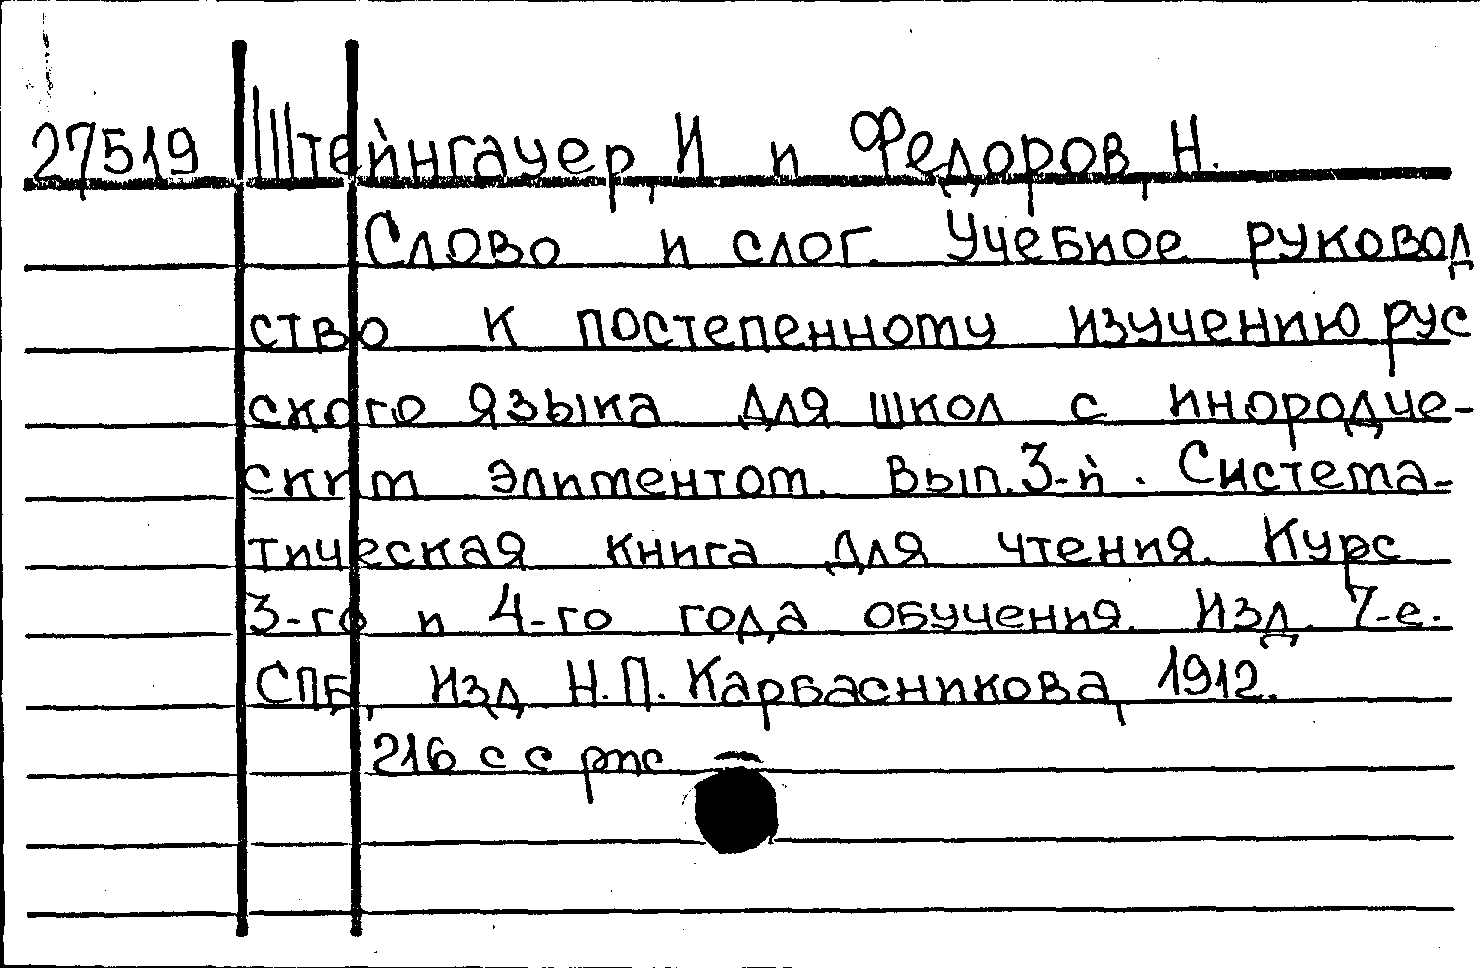 27519 Штейнгауер, И и Федоров, Н.
Слово и слог. Учебное руковод
ство к постепенному изучению рус
ского языка для школ с инородче-
ским элиментом. Вып. 3-й. Система-
тическая книга для чтения. Курс
3-го и 4-го года обучения. Изд. 7-е.
СПБ, Изд Н.П. Карбасникова, 1912.
216 с с рис